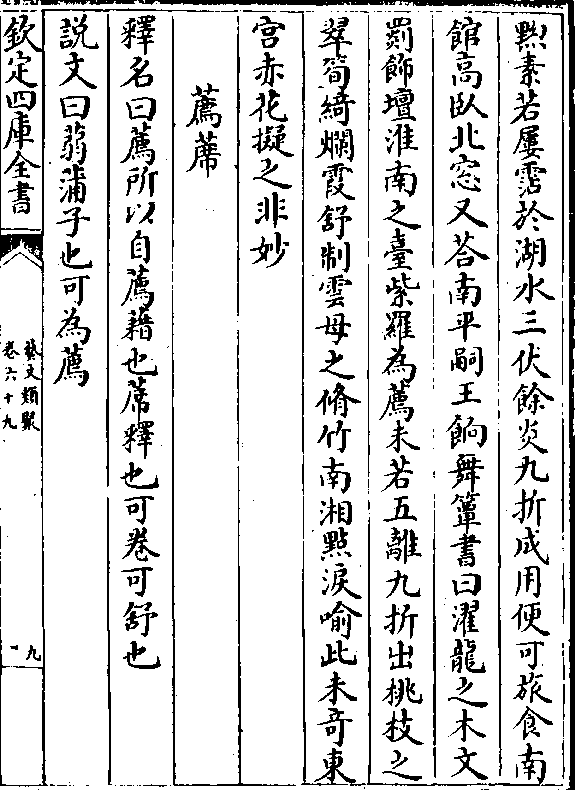 黙素若屢霑於湖水三伏餘炎九折成用便可旅食南
館高臥北窓又荅南平嗣王餉舞簟書曰濯龍之木文
罽飾壇淮南之臺紫羅為薦未若五離九折出桃枝之
翠筍綺爛霞舒制雲母之脩竹南湘㸃淚喻此未竒東
宫赤花擬之非妙
薦蓆
釋名曰薦所以自薦藉也蓆釋也可卷可舒也
説文曰蒻蒲子也可為薦
欽定四庫全書
藝文類聚
卷六十九
九